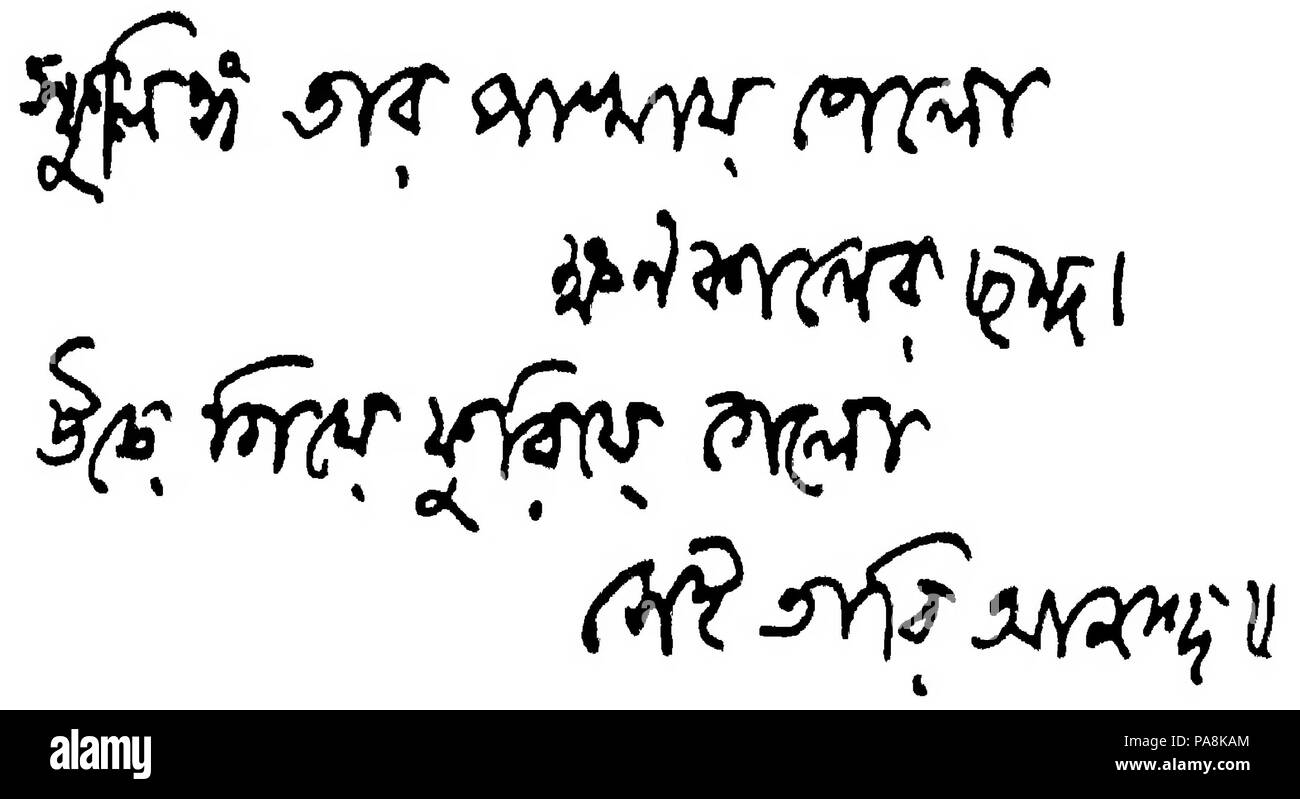 স্ফুলিঙ্গ তার পাখায় পেলো
ক্ষণকালের ছন্দ।
উড়ে গিয়ে ফুরিয়ে গেলো
সেই তারি আনন্দ॥
alamy
Image ID: PA8KAM
www.alamy.com